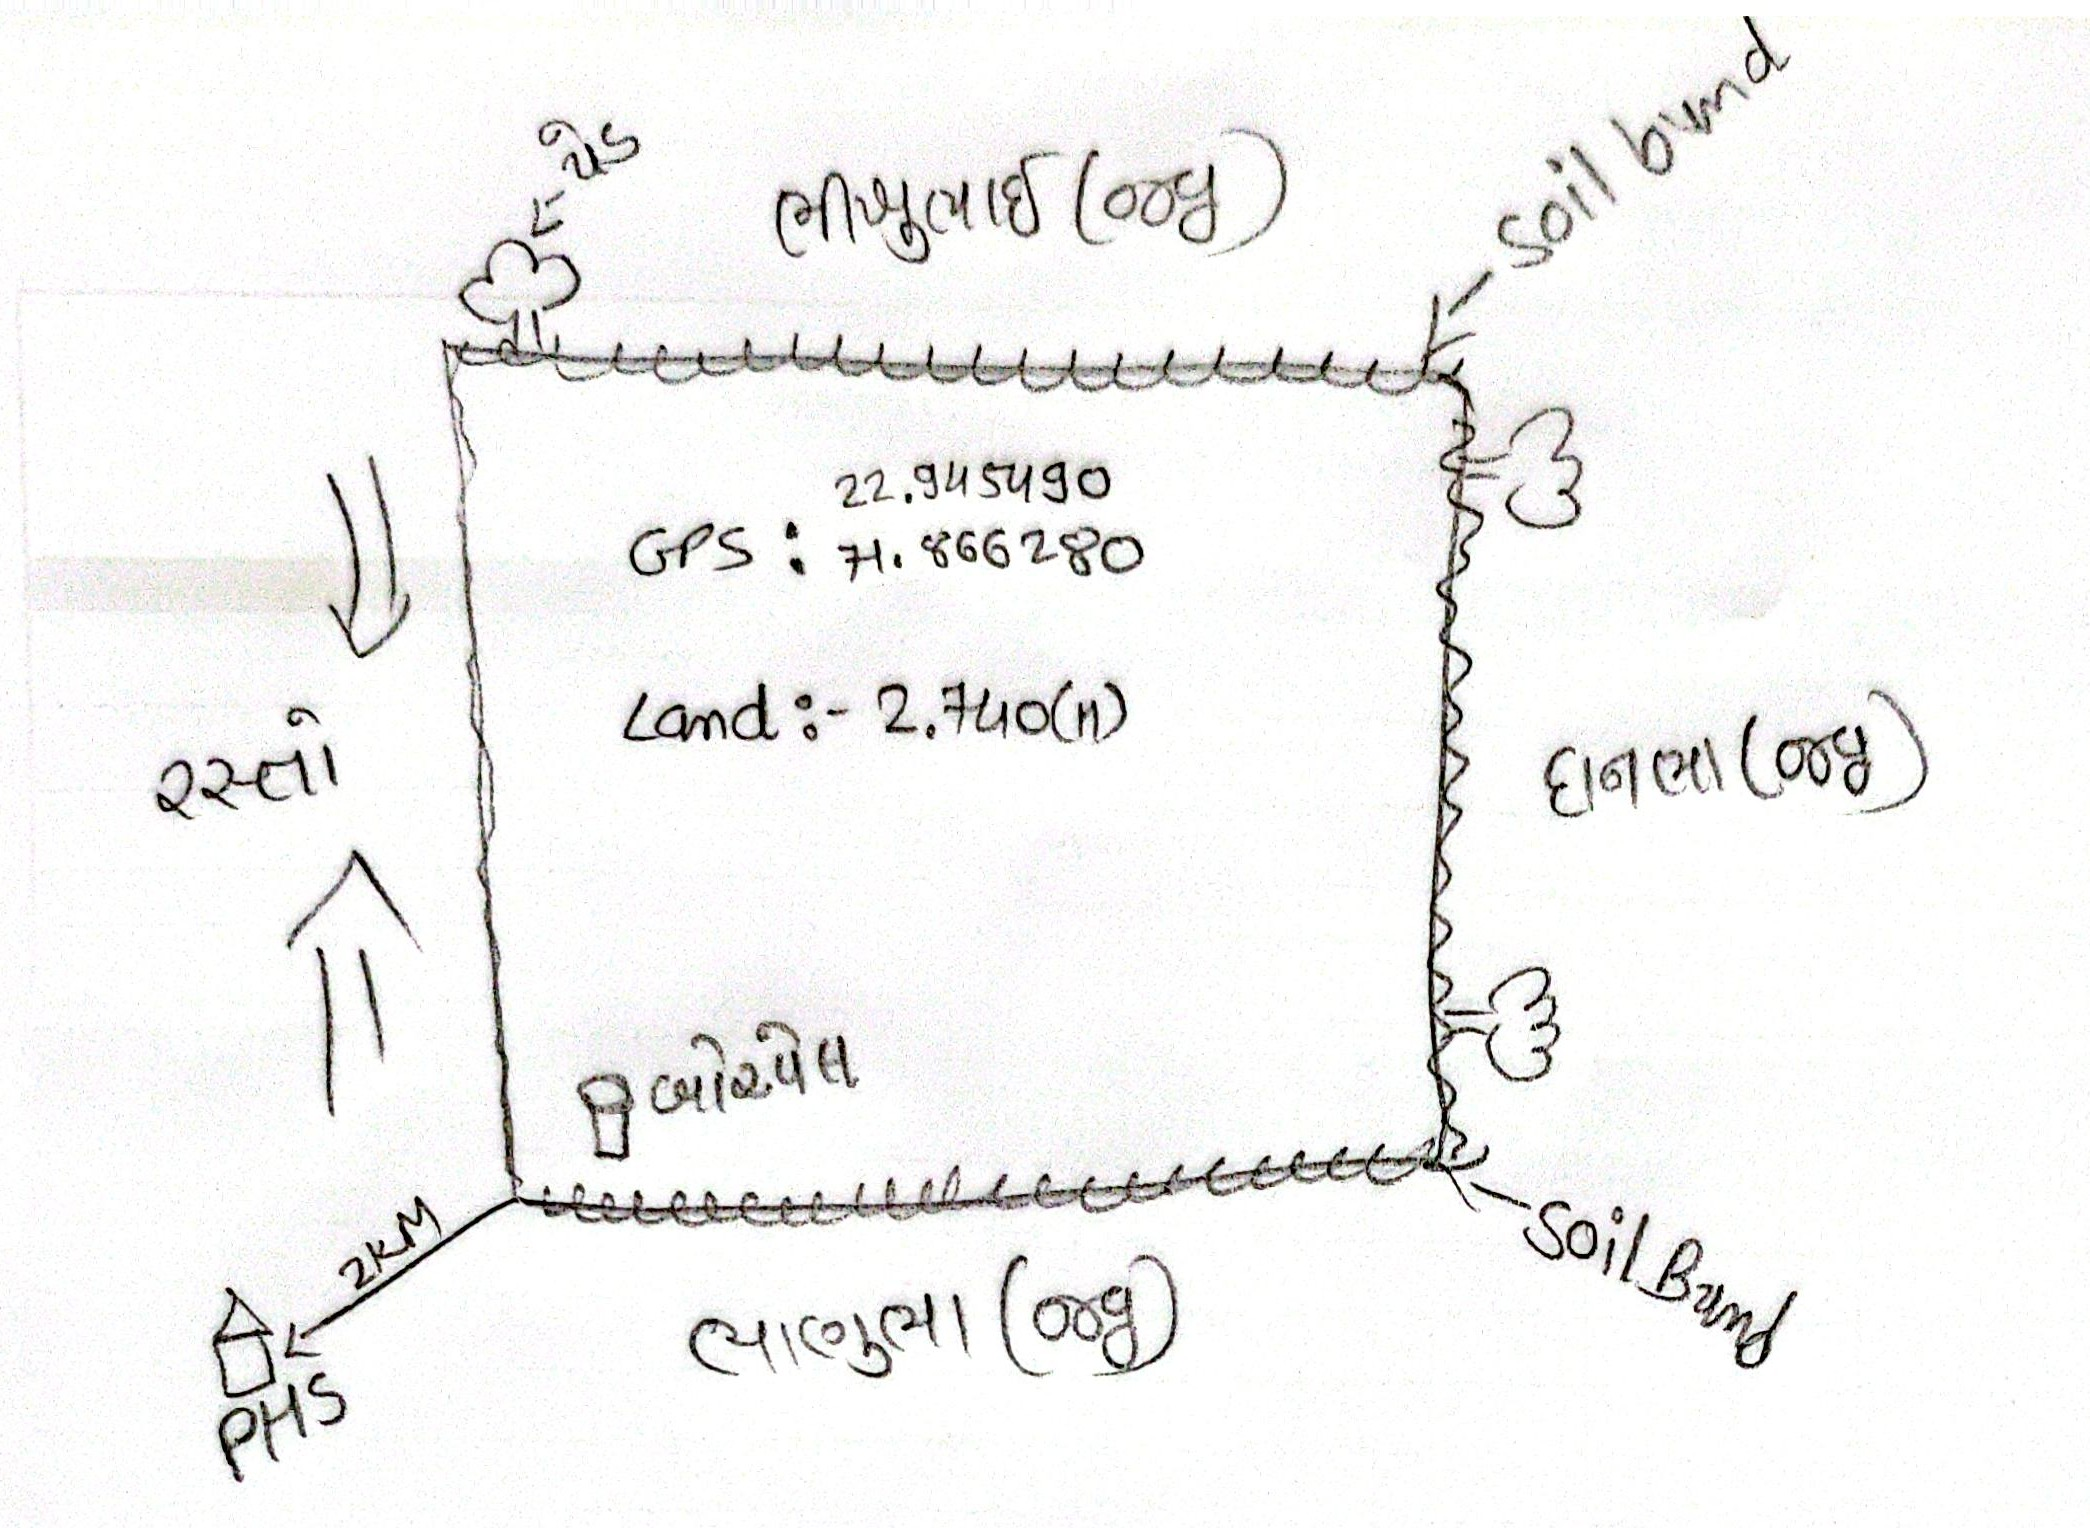 પેડ
ભીખુભાઈ (જીરૂ)
Soil bund
22.945490
GPS : 71.866280
Land :- 2.740(H)
રસ્તો
ઘનભા (જીરૂ)
બોરવેલ
2KM
Soil Bund
ભાણુભા (જીરૂ)
PHS